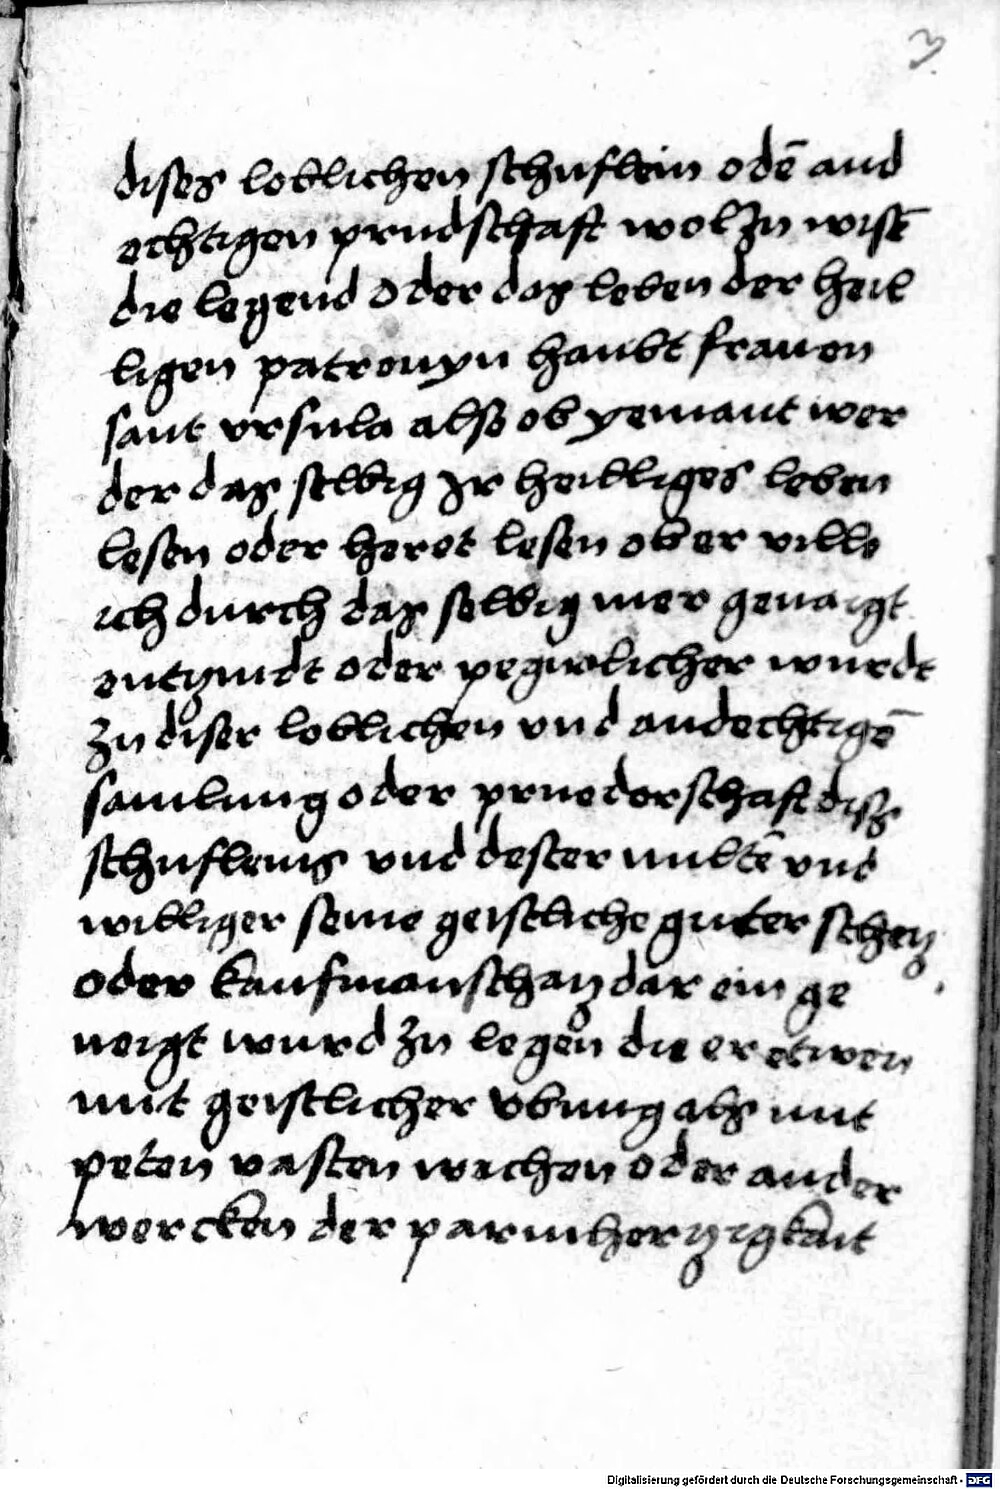 3
dises loblichen schuflein odē and
echtigen prudschaft wol zu wisē
die legend oder das leben der heil
ligen patronyn haubt frauen
sant vrsula also ob yemant wer
der das selbig jr heilliges leben
lesen oder heret lesen ob er villt
ich durch das selbig mer genaigt
entzundt oder pegirlicher wurdt
zu diser loblichen vnd andechtigē
samlung oder pruederschaft diß
schufleins vnd dester miltē vnd
williger seine geistliche guter schez
oder kaufmanschaz dar ein ge
neigt wurd zu legen die er etwen
mit geistlicher vbung als mit
peten vasten wachen oder ander
wercken der parmherzigkait
Digitalisierung gefördert durch die Deutsche Forschungsgemeinschaft - DFG